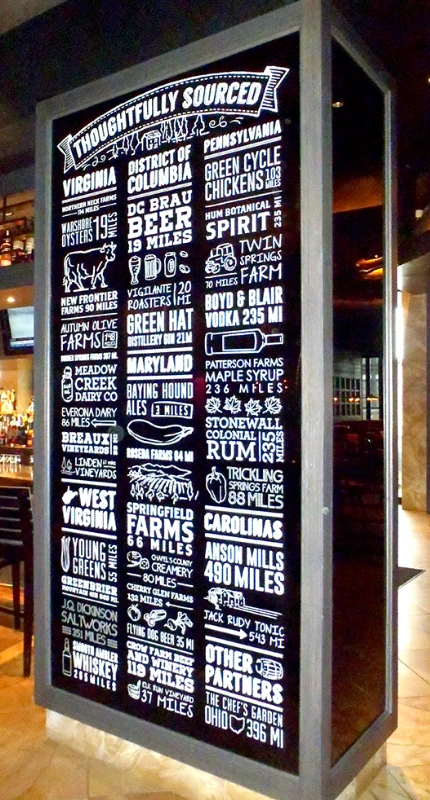 THOUGHTFULLY SOURCED
VIRGINIA
NORTHERN NECK FARMS
114 MILES
WARSHORE
OYSTERS 19 MILES
NEW FRONTIER
FARMS 90 MILES
AUTUMN OLIVE
FARMS
MEADOW
CREEK
DAIRY CO
EVERONA DAIRY
86 MILES
BREAUX
VINEYARDS
LINDEN
VINEYARDS
WEST
VIRGINIA
YOUNG
GREENS 55 MILES
GREENBRIER
J.Q. DICKINSON
SALTWORKS
351 MILES
SMOOTH AMBLER
WHISKEY
DISTRICT OF
COLUMBIA
DC BRAU
BEER
19 MILES
VIGILANTE
ROASTERS 20 MI
GREEN HAT
DISTILLERY GIN 21M
MARYLAND
BAYING HOUND
ALES 3 MILES
ROSEDA FARMS 64 MI
SPRINGFIELD
FARMS
66 MILES
CHAPEL'S COUNTRY
CREAMERY
80 MILES
CHERRY GLEN FARMS
132 MILES
FLYING DOG BEER 35 MI
CROW FARM BEEF
AND WINERY
119 MILES
ELK RUN VINEYARD
37 MILES
PENNSYLVANIA
GREEN CYCLE
CHICKENS 103 MILES
HUM BOTANICAL
SPIRIT 235 MI
TWIN
SPRINGS
FARM
70 MILES
BOYD & BLAIR
VODKA 235 MI
PATTERSON FARMS
MAPLE SYRUP
236 MILES
STONEWALL
COLONIAL
RUM 235 MILES
TRICKLING
SPRINGS FARM
88 MILES
CAROLINAS
ANSON MILLS
490 MILES
JACK RUDY TONIC
543 MI
OTHER
PARTNERS
THE CHEF'S GARDEN
OHIO 396 MI